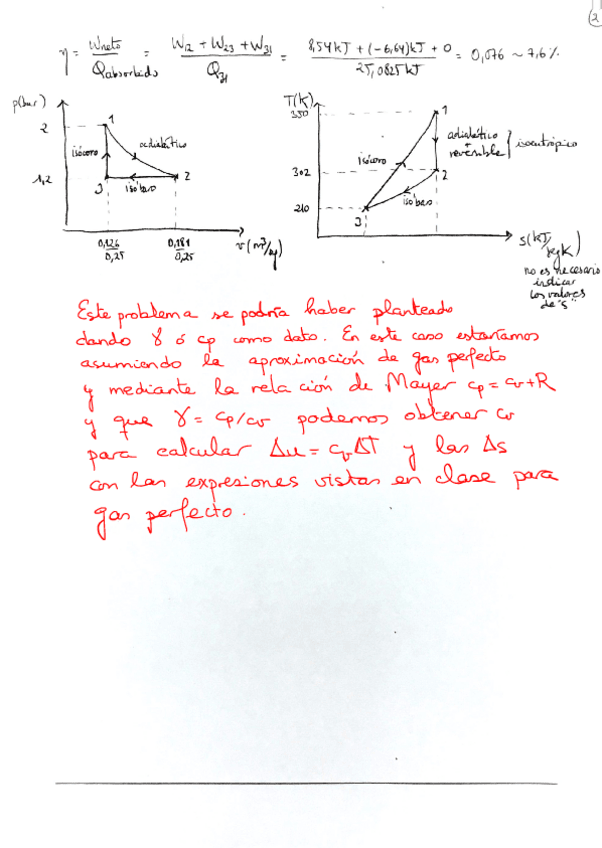 2
η = Wneto / Qabsorbido = W12 + W23 + W31 / Q31 = 8,54 kJ + (-6,64) kJ + 0 / 25,0825 kJ = 0,076 ~ 7,6%
p(bar)
2
1
isócoro
adiabático
1,2
3
isóbaro
2
0,126 / 0,25
0,181 / 0,25
v (m³/kg)
T(K)
350
1
adiabático + reversible } isoentrópico
isócoro
302
2
isóbaro
210
3
s(kJ/kgK)
no es necesario
indicar
los valores
de "s"
Este problema se podría haber planteado
dando γ ó cp como dato. En este caso estaríamos
asumiendo la aproximación de gas perfecto
y mediante la relación de Mayer cp = cv + R
y que γ = cp/cv podemos obtener cv
para calcular Δu = cvΔT y las Δs
con las expresiones vistas en clase para
gas perfecto.